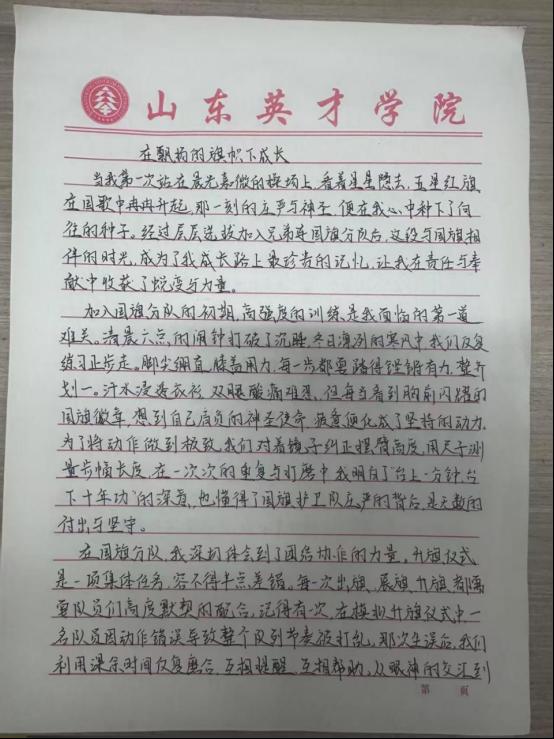 山东英才学院
在飘扬的旗帜下成长
当我第一次站在晨光熹微的操场上，看着星星隐去，五星红旗
在国歌中冉冉升起，那一刻的庄严与神圣，便在我心中种下了向
往的种子。经过层层选拔加入兄弟连国旗分队后，这段与国旗相
伴的时光，成为了我成长路上最珍贵的记忆，让我在责任与奉
献中收获了蜕变与力量。
加入国旗分队的初期，高强度的训练是我面临的第一道
难关。清晨六点的闹钟打破了沉睡，冬日凛冽的寒风中我们反复
练习正步走。脚尖绷直，膝盖用力，每一步都要踏得铿锵有力，整齐
划一。汗水浸透衣衫，双腿酸痛难忍，但每当看到胸前闪耀的
国旗徽章，想到自己肩负的神圣使命，疲惫便化成了坚持的动力。
为了将动作做到极致，我们对着镜子纠正摆臂高度，用尺子测
量步幅长度，在一次次的重复与打磨中，我明白了“台上一分钟，台
下十年功”的深意，也懂得了国旗护卫队庄严的背后，是无数的
付出与坚守。
在国旗分队，我深刻体会到了团结协作的力量。升旗仪式
是一项集体任务，容不得半点差错。每一次出旗、展旗、升旗，都需
要队员们高度默契的配合。记得有一次，在模拟升旗仪式中，一
名队员因动作错误导致整个队列节奏被打乱。那次失误后，我们
利用课余时间反复磨合，互相提醒，互相帮助，从眼神的交汇到
第 页